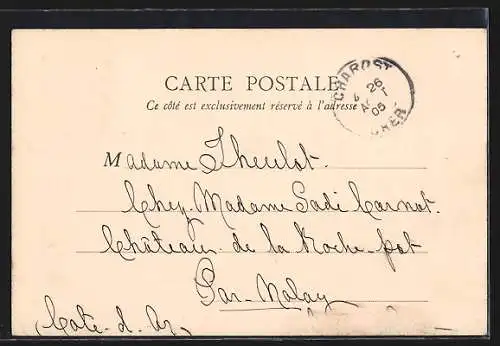 CARTE POSTALE
Ce côté est exclusivement réservé à l'adresse
CHAROST
26
05
CHER
Madame Theulot.
Chez Madame Sadi Carnot.
Château de la Roche-pot
Par Nolay
Cote-d'Or